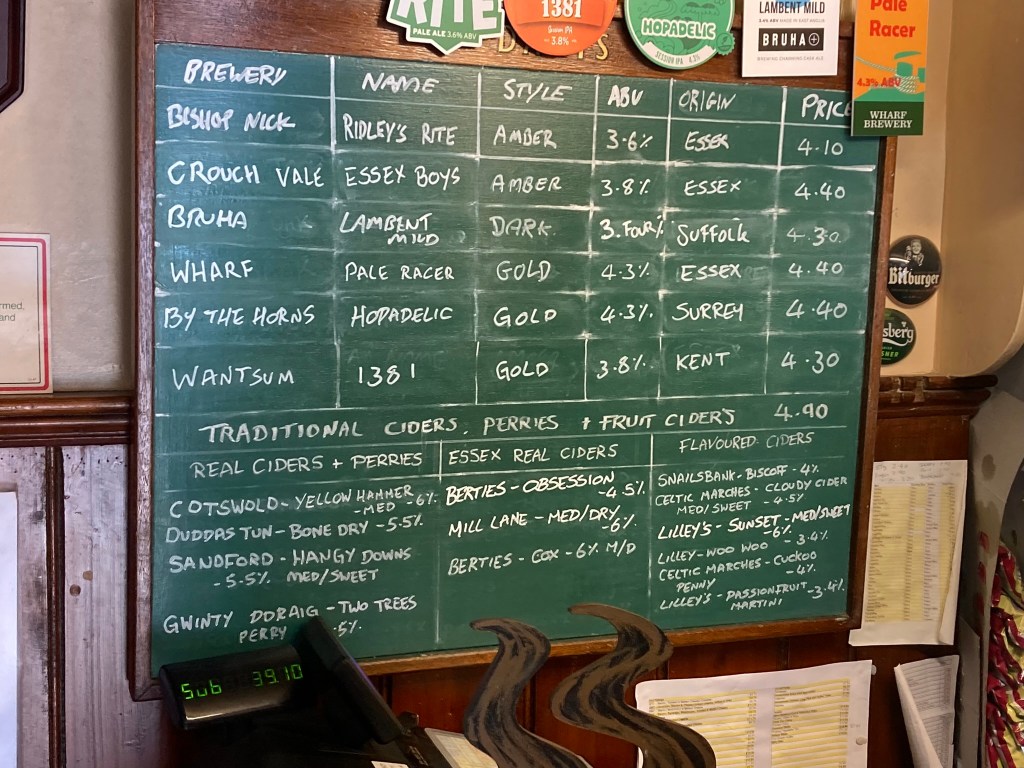 RITE
PALE ALE 3.6% ABV
1381
Session IPA
3.8%
HOPADELIC
SESSION IPA 4.3%
LAMBENT MILD
3.4% ABV MADE IN EAST ANGLIA
BRUHA
Pale
Racer
4.3% ABV
WHARF
BREWERY
BREWERY NAME STYLE ABV ORIGIN PRICE
BISHOP NICK RIDLEY'S RITE AMBER 3.6% ESSEX 4.10
CROUCH VALE ESSEX BOYS AMBER 3.8% ESSEX 4.40
BRUHA LAMBENT MILD DARK 3.FOUR% SUFFOLK 4.30
WHARF PALE RACER GOLD 4.3% ESSEX 4.40
BY THE HORNS HOPADELIC GOLD 4.3% SURREY 4.40
WANTSUM 1381 GOLD 3.8% KENT 4.30
TRADITIONAL CIDERS, PERRIES + FRUIT CIDER'S 4.90
REAL CIDERS + PERRIES
COTSWOLD - YELLOW HAMMER
- MED - 6%
DUDDAS TUN - BONE DRY - 5.5%
SANDFORD - HANGY DOWNS
- 5.5% MED/SWEET
GWINTY DDRAIG - TWO TREES
PERRY - 5%
ESSEX REAL CIDERS
BERTIES - OBSESSION
- 4.5%
MILL LANE - MED/DRY
- 6%
BERTIES - COX - 6% M/D
FLAVOURED CIDERS
SNAILSBANK - BISCOFF - 4%
CELTIC MARCHES - CLOUDY CIDER
MED/SWEET - 4.5%
LILLEY'S - SUNSET - MED/SWEET
- 6%
LILLEY - WOO WOO - 3.4%
CELTIC MARCHES - CUCKOO
PENNY - 4%
LILLEY'S - PASSIONFRUIT - 3.4%
MARTINI
Bitburger
sberg
rmed,
and
Sub 39.10